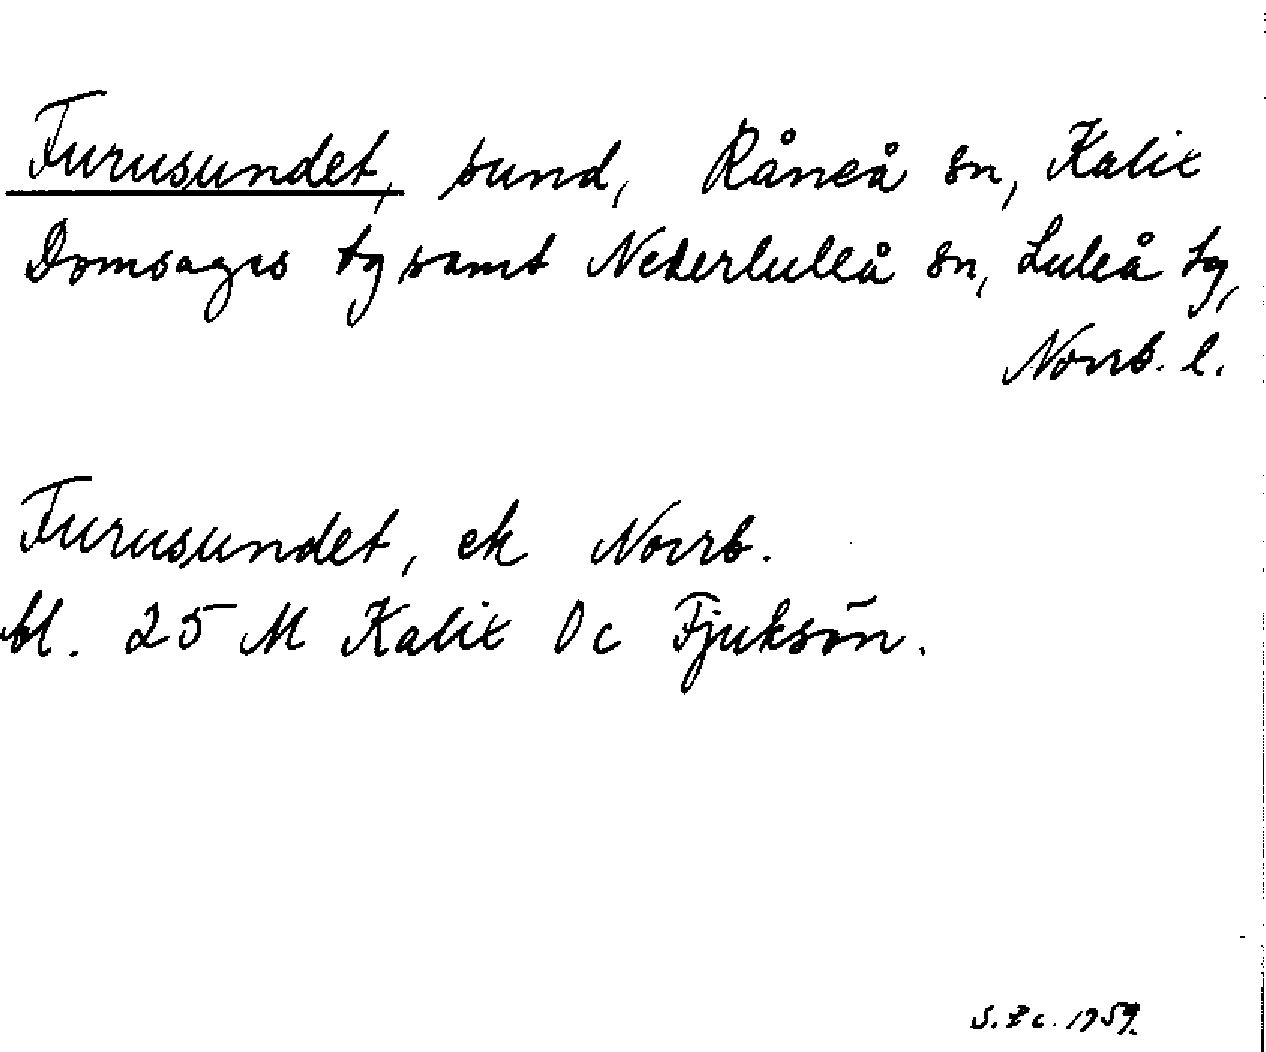 Furusundet, sund, Råneå sn, Kalix
Domsagas tg samt Nederluleå sn, Luleå tg,
Norrb. l.
Furusundet, ek Norrb.
bl. 25 M Kalix Dc Fjuksön.
1959.